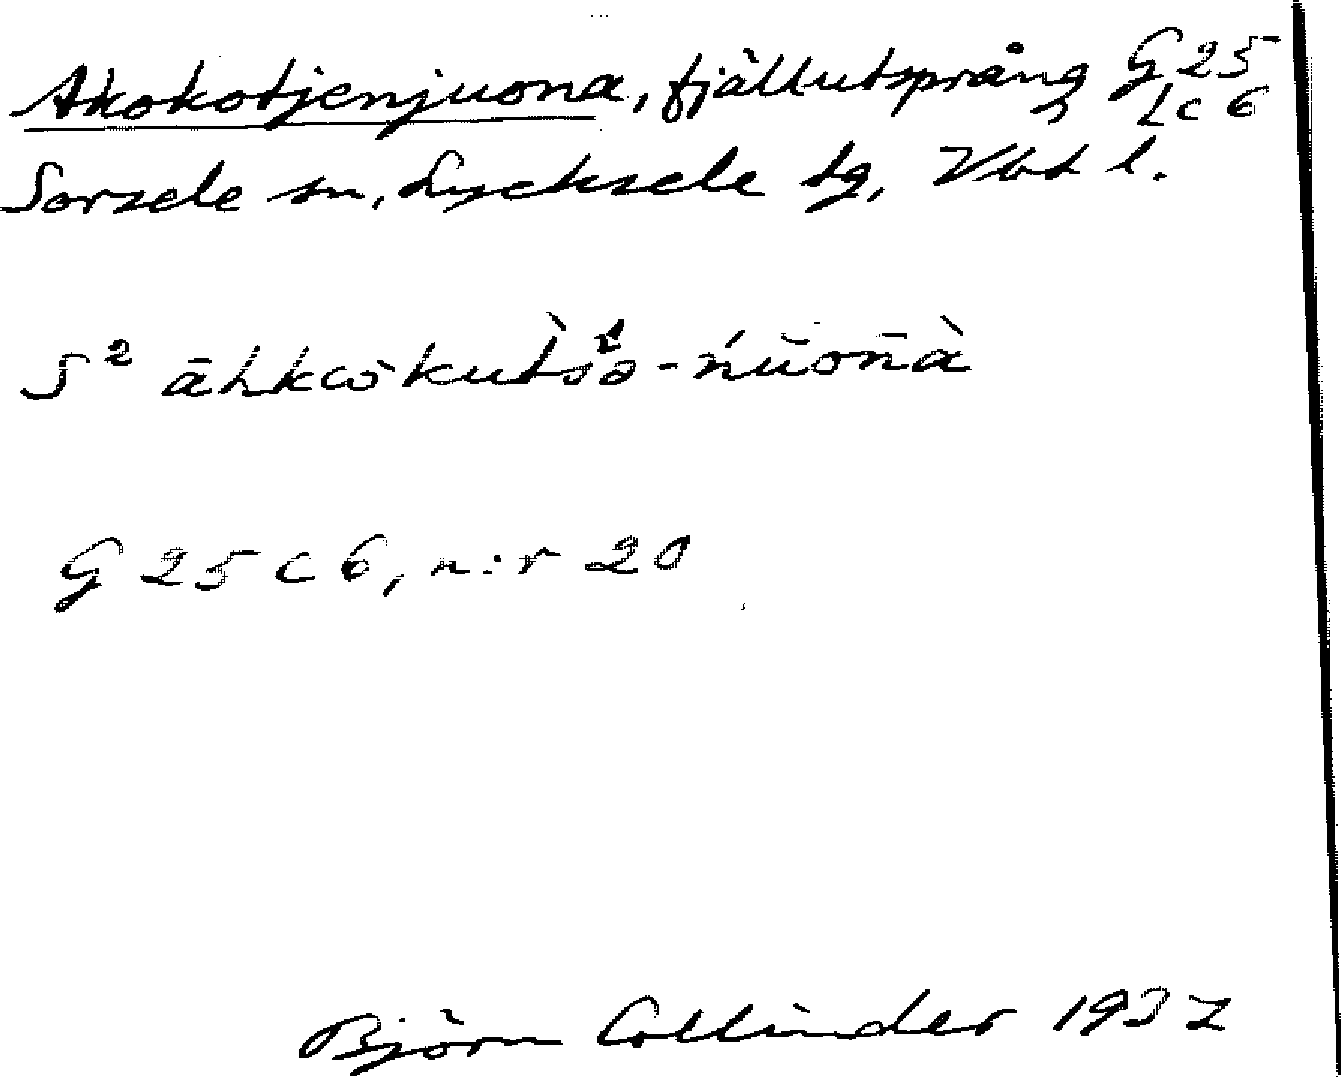 Akokotjenjuona, fjällutsprång G 25
Lc 6
Sorsele sn, Lycksele tg, Vbt l.
S² āhkkòkutsə-ńūōnà
G 25 c 6, n:r 20
Björn Collinder 1937